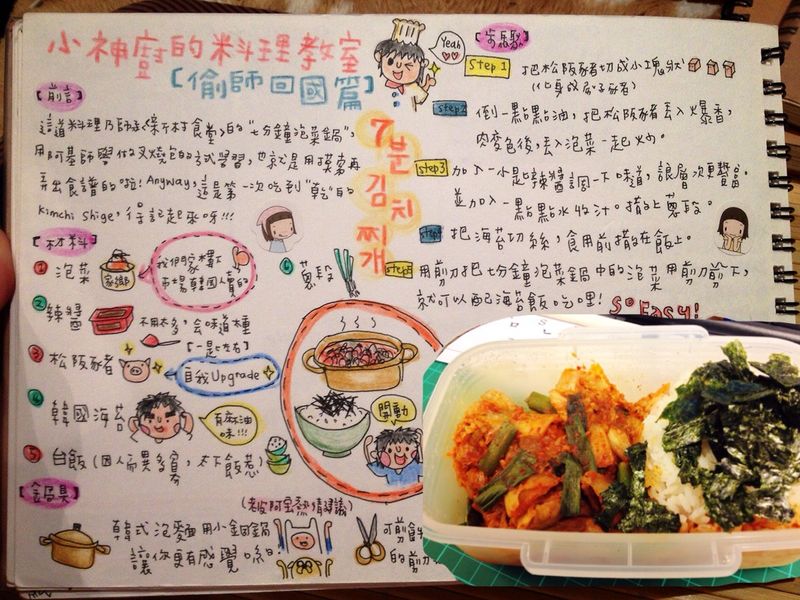 小神廚的料理教室
【偷師回國篇】
Yeah
[前言]
這道料理乃師承《新村食堂》的"七分鐘泡菜鍋",
用阿基師學做叉燒包的方式學習,也就是用摸索再
弄出食譜的啦! Anyway, 這是第一次吃到"乾"的
Kimchi Jjige, 得記起來呀!!!
[材料]
① 泡菜
家鄉
我們家樓下
市場韓國人賣的
② 辣醬
不用太多,会味道重
[一匙左右]
③ 松阪豬
自我Upgrade
④ 韓國海苔
有麻油
味!!!
⑤ 白飯 (因人而異多寡,太下飯惹)
⑥ 蔥段
7분 김치찌개
開動
[鍋具]
韓式泡麵用小銅鍋
讓你更有感覺喲
的剪刀
[步驟]
Step 1 把松阪豬切成小塊狀
(化身成骰子豬)
step2 倒一點點油,把松阪豬丟入爆香,
肉变色後,丟入泡菜一起炒。
step3 加入一小匙辣醬調一下味道,讓層次更豐富。
並加入一點點水收汁。撒上蔥段。
把海苔切絲,食用前撒在飯上。
step5 用剪刀把七分鐘泡菜鍋中的泡菜用剪刀剪下,
就可以配海苔飯吃哩! So Easy!